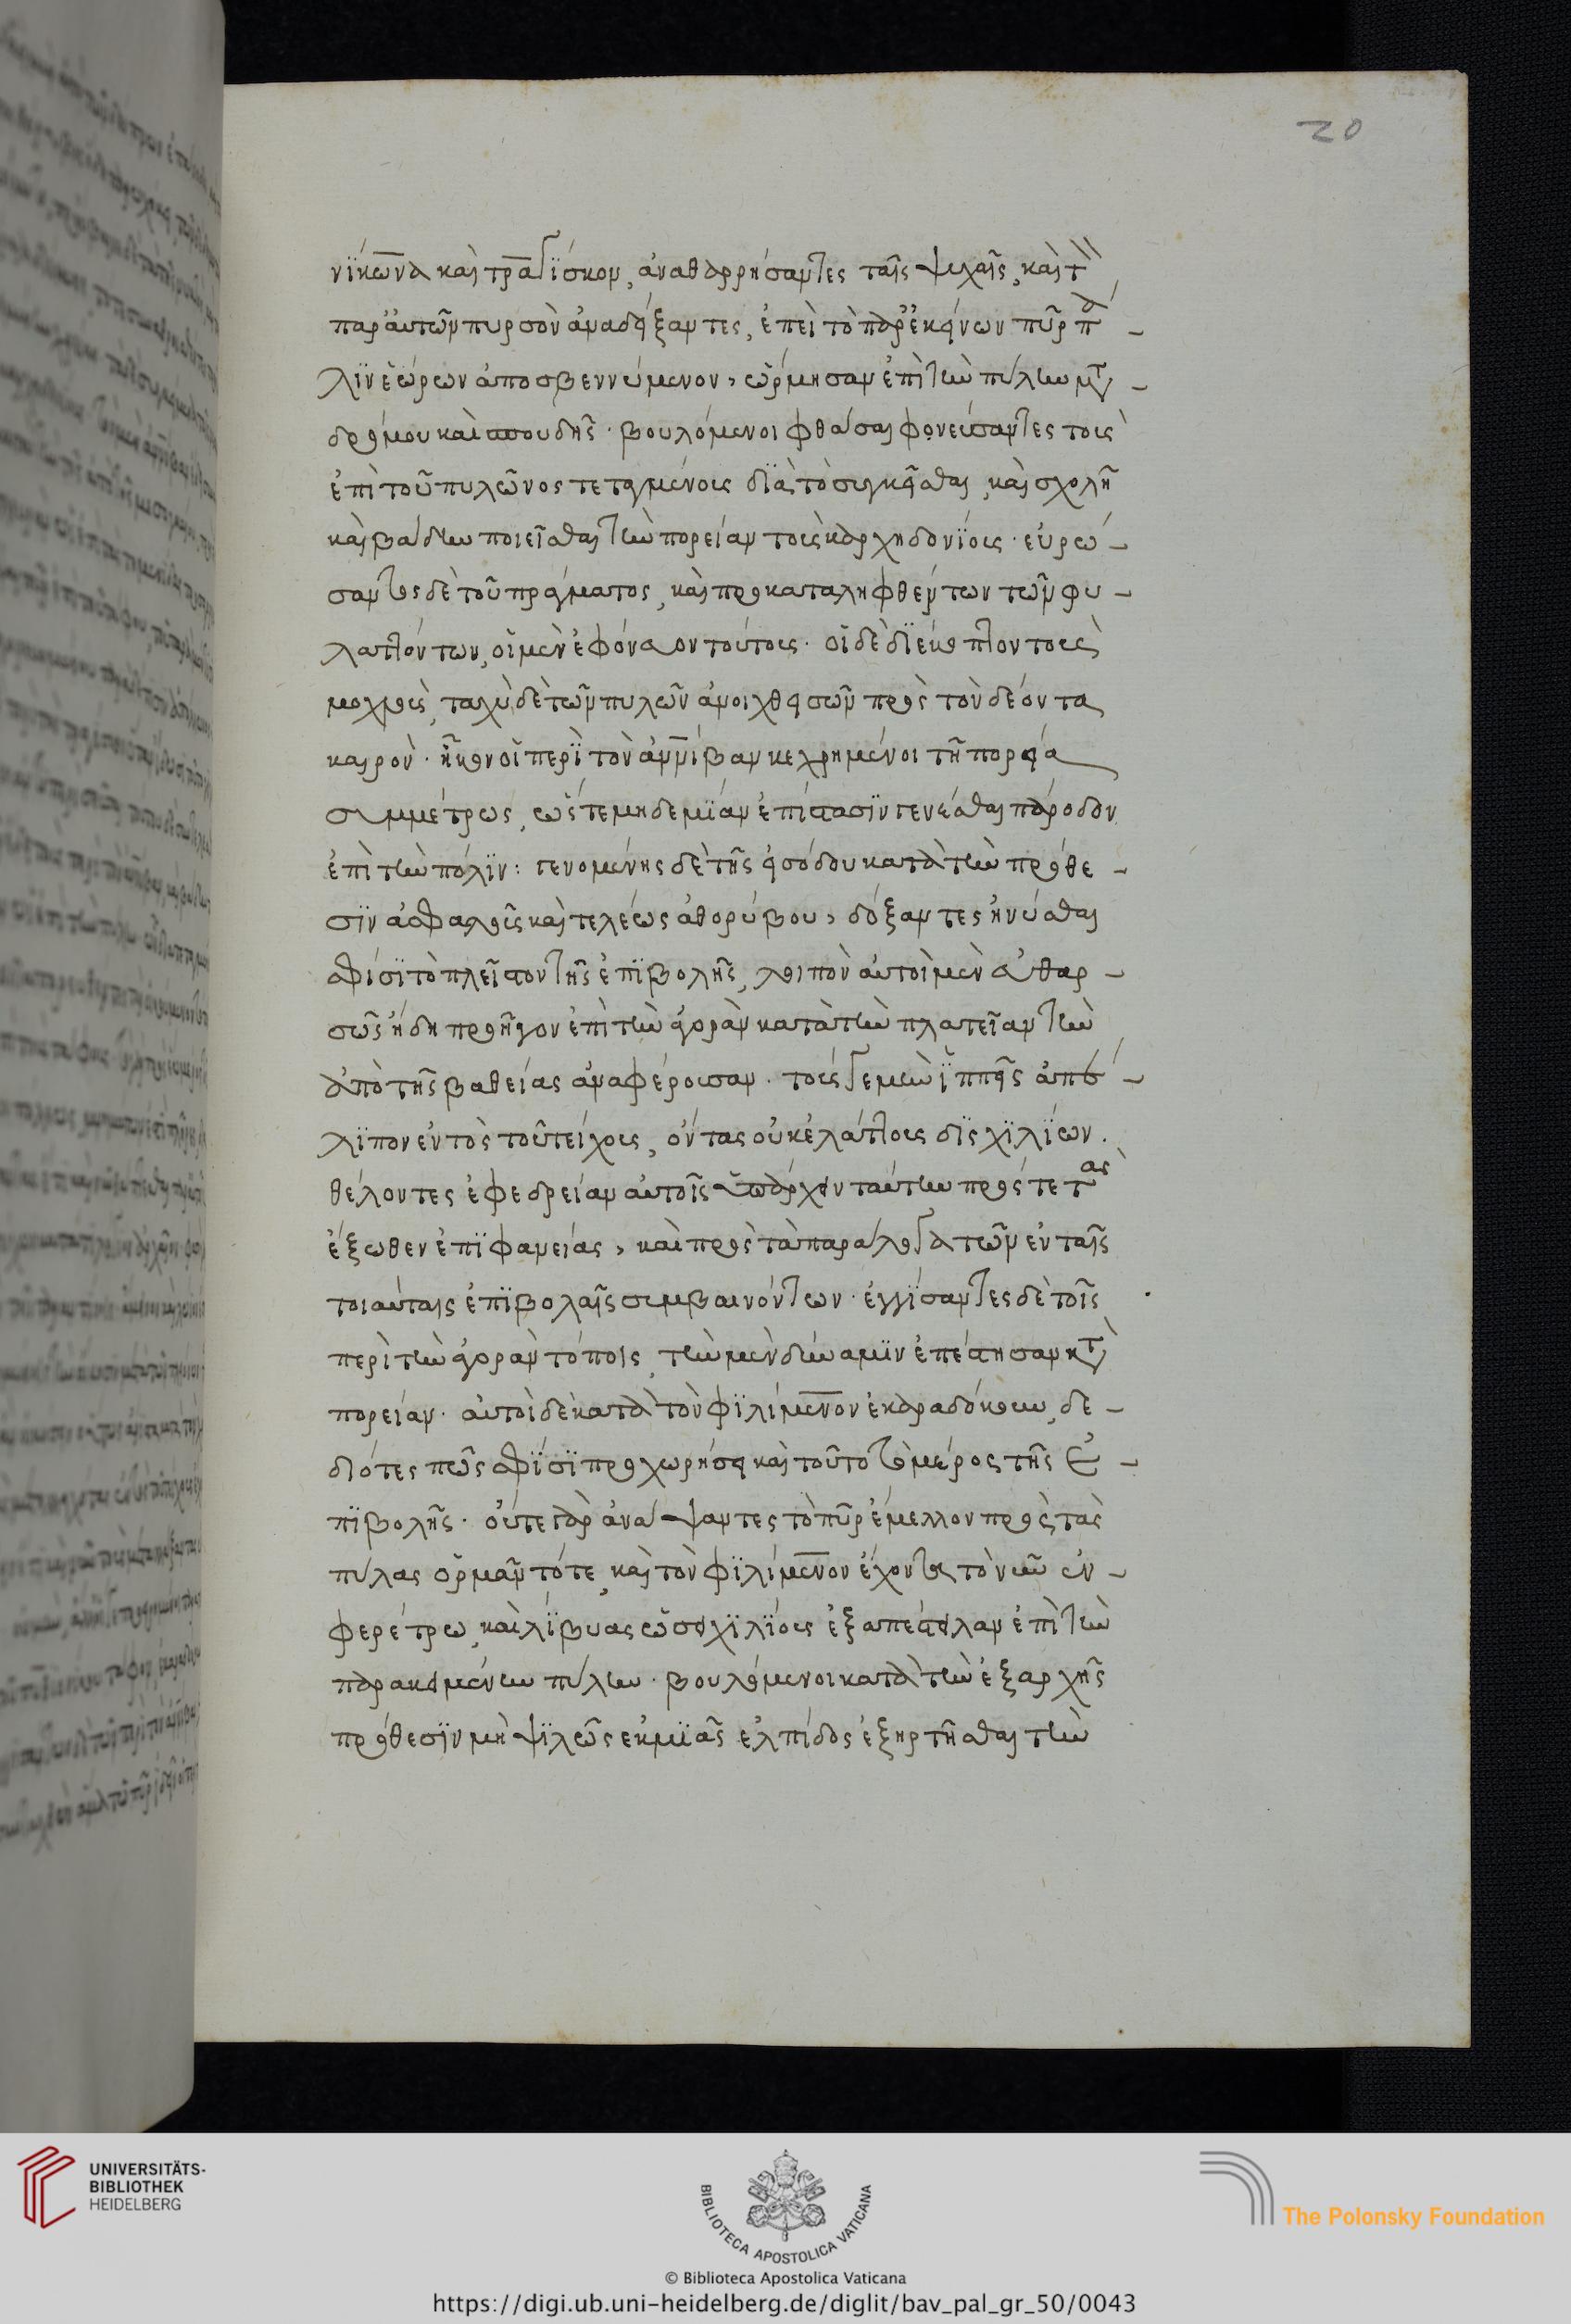 20
νϊκωνα καὶ τραγϊσκον, ἀναθαρρήσαντες ταῖς ψυχαῖς, καὶ τὸν
παρ' αὐτῶν πυρσὸν ἀναδείξαντες, ἐπεὶ τὸ παρ' ἐκείνων πῦρ πά-
λϊν ἑώρων ἀποσβεννύμενον, ὥρμησαν ἐπὶ τὴν πύλην μετὰ
δρόμου καὶ σπουδῆς· βουλόμενοι φθάσαι φονεύσαντες τοὺς
ἐπὶ τοῦ πυλῶνος τεταγμένους διὰ τὸ συγκεῖσθαι, καὶ σχολῆ
καὶ βάδην ποιεῖσθαι τὴν πορείαν τοὺς καρχηδονϊους· εὐρω-
σαντος δὲ τοῦ πράγματος, καὶ προκαταληφθέντων τῶν φυ-
λαττόντων, οἱ μὲν ἐφόνευον τούτους· οἱ δὲ δϊέκοπτον τοὺς
μοχλοὺς, ταχὺ δὲ τῶν πυλῶν ἀνοιχθεισῶν πρὸς τὸν δέοντα
καιρὸν· ἧκον οἱ περὶ τὸν ἀννίβαν κεχρημένοι τῆ πορεία
συμμέτρως, ὥστε μηδεμϊαν ἐπίστασϊν γενέσθαι πάροδον
ἐπὶ τὴν πόλϊν: γενομένης δὲ τῆς εἰσόδου κατὰ τὴν πρόθε-
σϊν ἀσφαλοῦς καὶ τελέως ἀθορύβου, δόξαντες ἠνύσθαι
σφίσϊ τὸ πλεῖστον τῆς ἐπϊβολῆς, λοιπὸν αὐτοὶ μὲν εὐθαρ-
σῶς ἤδη προῆγον ἐπὶ τὴν ἀγορὰν κατὰ τὴν πλατεῖαν τὴν
ἀπὸ τῆς βαθείας ἀναφέρουσαν· τούς γε μὴν ϊππεῖς ἀπέ-
λϊπον ἐντὸς τοῦ τείχους, ὄντας οὐκ ἐλάττους δϊς χϊλϊων.
θέλοντες ἐφεδρείαν αὐτοῖς ὑπάρχειν ταύτην πρός τε τὰς
ἔξωθεν ἐπϊφανείας, καὶ πρὸς τὰ παράλογα τῶν ἐν ταῖς
τοιαύταις ἐπϊβολαῖς συμβαινόντων· ἐγγϊσαντες δὲ τοῖς
περὶ τὴν ἀγορὰν τόποις, τὴν μὲν δύναμϊν ἐπέστησαν κατὰ
πορείαν· αὐτοὶ δὲ κατὰ τὸν φϊλίμενον ἐκαραδόκουν, δε-
διότες πῶς σφϊσϊ προχωρήσει καὶ τοῦτο τὸ μέρος τῆς ἐ-
πϊβολῆς· ὅτε γὰρ ἀνάψαντες τὸ πῦρ ἔμελλον πρὸς τὰς
πύλας ὁρμᾶν τότε, καὶ τὸν φϊλίμενον ἔχοντα τὸν ὗν ἐν
φερέτρω, καὶ λϊβυας ὡσεὶ χϊλϊους ἐξαπέστειλαν ἐπὶ τὴν
παρακειμένην πύλην· βουλόμενοι κατὰ τὴν ἐξ αρχῆς
πρόθεσϊν μὴ ψϊλῶς ἐκ μϊᾶς ἐλπίδος ἐξηρτῆσθαι τὴν
UNIVERSITÄTS-
BIBLIOTHEK
HEIDELBERG
BIBLIOTECA APOSTOLICA VATICANA
The Polonsky Foundation
© Biblioteca Apostolica Vaticana
https://digi.ub.uni-heidelberg.de/diglit/bav_pal_gr_50/0043